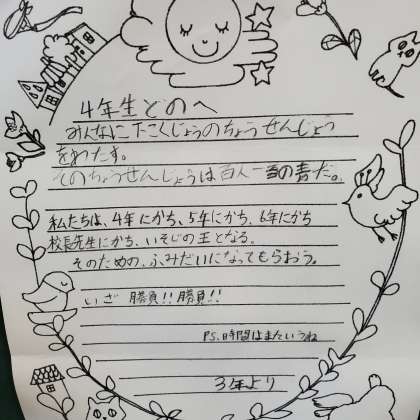 4年生どのへ
みんなに下こくじょうのちょうせんじょう
をわたす。
そのちょうせんじょうは百人一首の青だ。
私たちは、4年にかち、5年にかち、6年にかち
校長先生にかち、いそじの王となる。
そのための、ふみだいになってもらおう。
いざ 勝負!!勝負!!
PS.時間はまたいうね
3年より